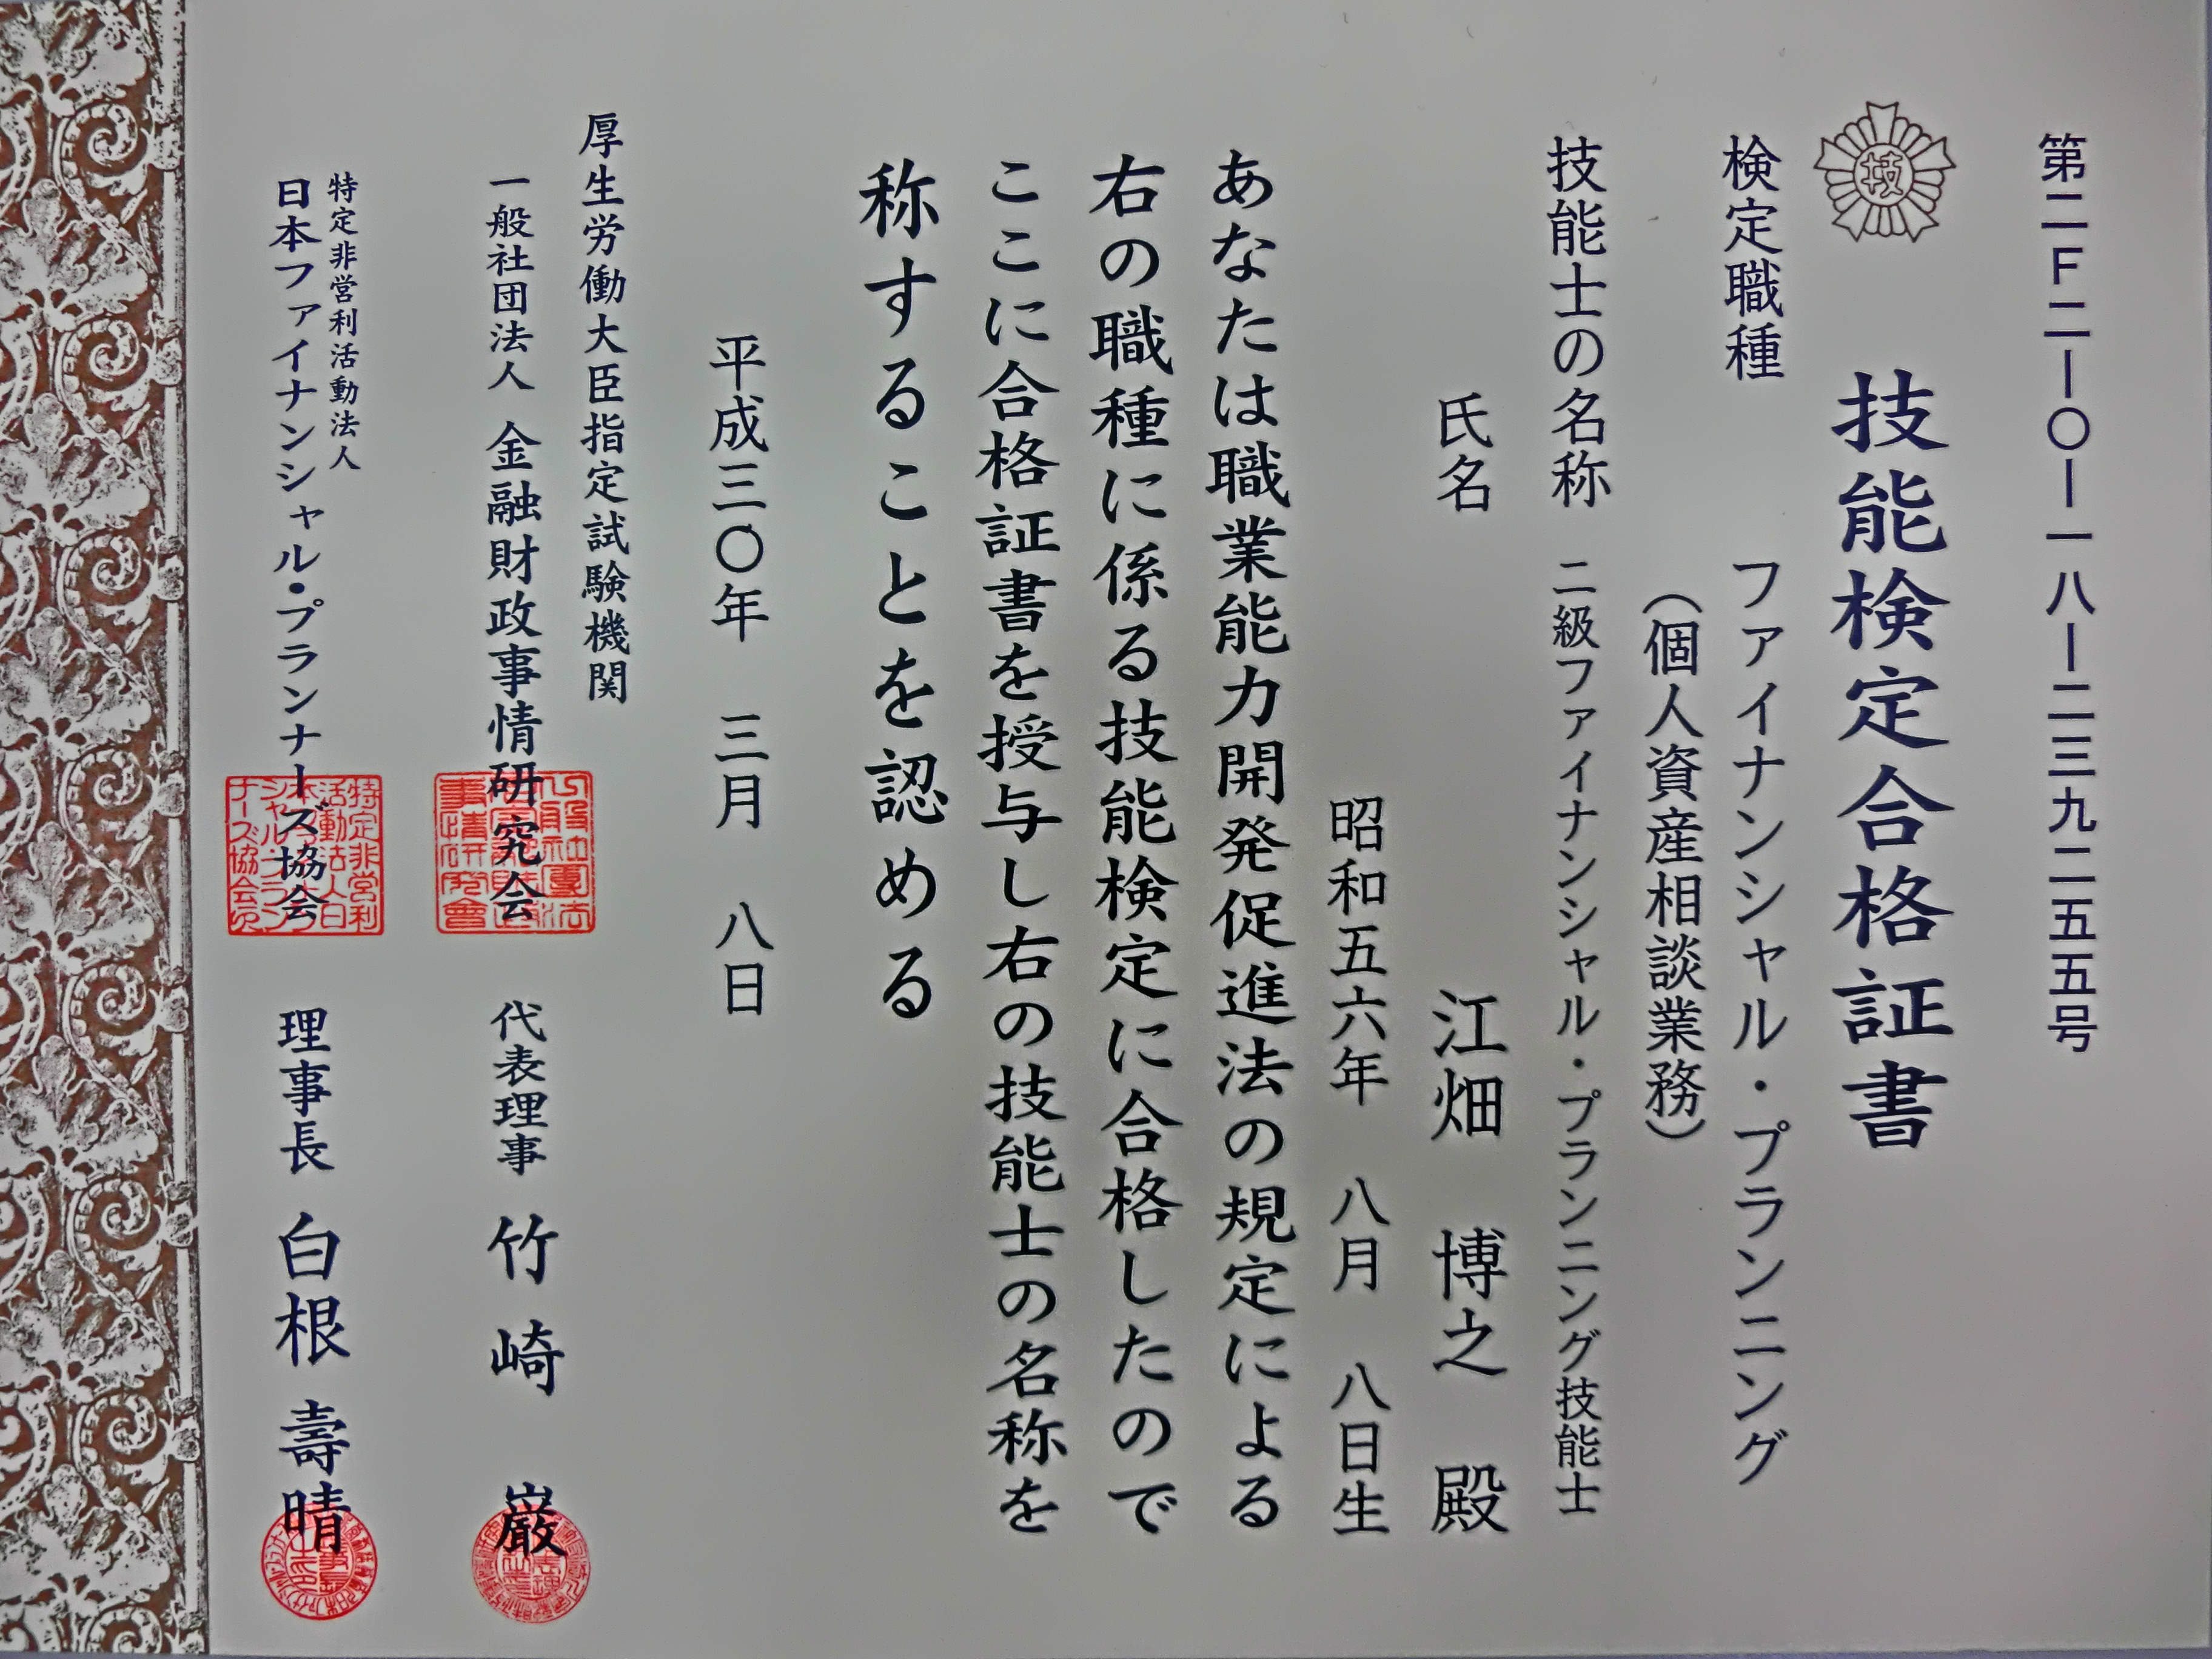 第二F二ー〇ー一八ー二三九二五五号
技
技能検定合格証書
検定職種 ファイナンシャル・プランニング
(個人資産相談業務)
技能士の名称 二級ファイナンシャル・プランニング技能士
氏名 江畑 博之 殿
昭和五六年 八月 八日生
あなたは職業能力開発促進法の規定による
右の職種に係る技能検定に合格したので
ここに合格証書を授与し右の技能士の名称を
称することを認める
平成三〇年 三月 八日
厚生労働大臣指定試験機関
一般社団法人 金融財政事情研究会 代表理事 竹崎 巌
特定非営利活動法人
日本ファイナンシャル・プランナーズ協会 理事長 白根 壽晴